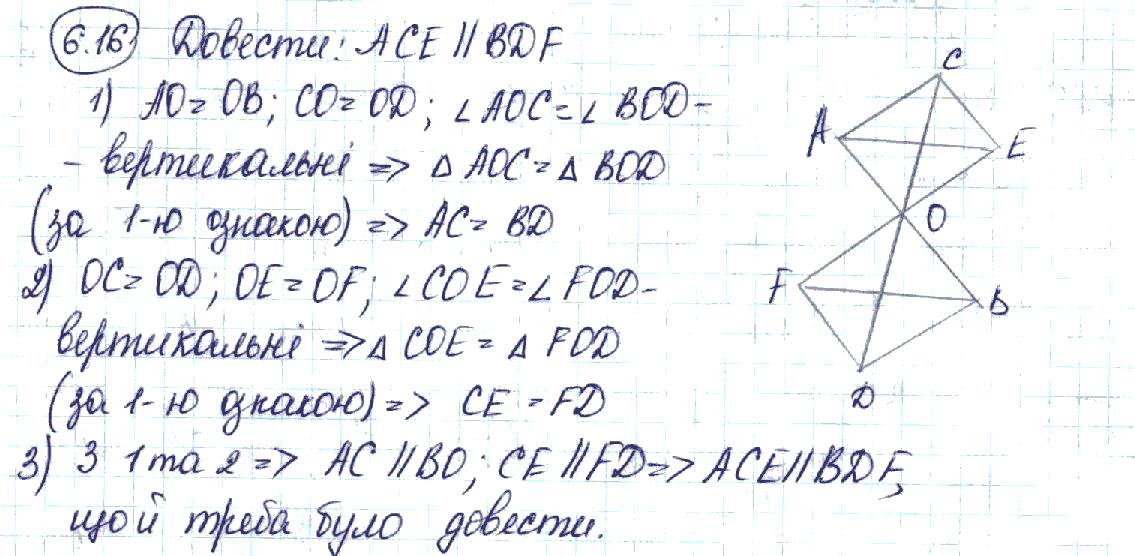 6.16 Довести: ACE || BDF
1) AO = OB; CO = OD; ∠ AOC = ∠ BOD -
- вертикальні => Δ AOC = Δ BOD
(за 1-ю ознакою) => AC = BD
2) OC = OD; OE = OF; ∠ COE = ∠ FOD -
вертикальні => Δ COE = Δ FOD
(за 1-ю ознакою) => CE = FD
3) З 1 та 2 => AC || BO; CE || FD => ACE || BDF,
щой треба було довести.
C
A
E
O
F
B
D